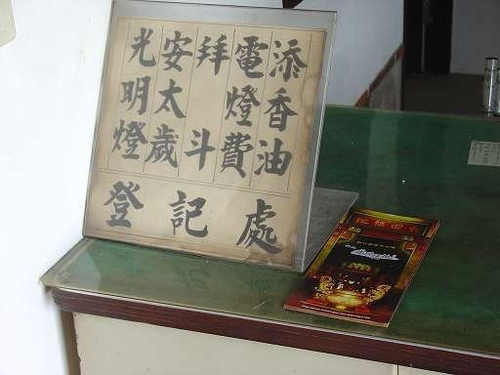 添香油
電燈費
拜斗
安太歲
光明燈
登記處